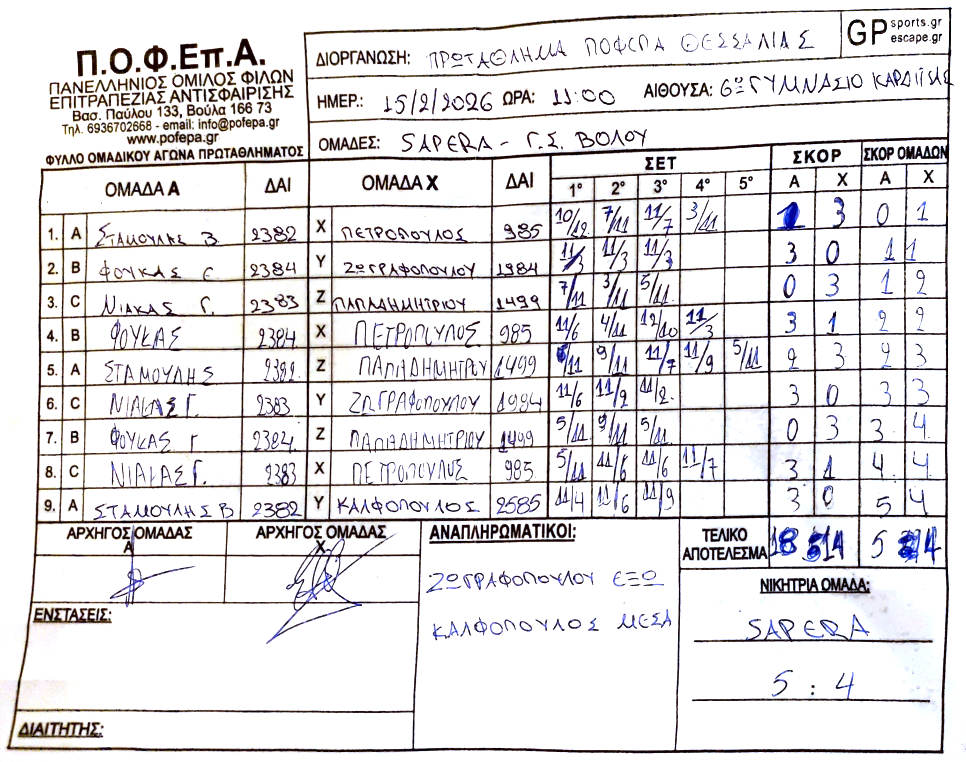 Π.Ο.Φ.Επ.Α.
ΠΑΝΕΛΛΗΝΙΟΣ ΟΜΙΛΟΣ ΦΙΛΩΝ
ΕΠΙΤΡΑΠΕΖΙΑΣ ΑΝΤΙΣΦΑΙΡΙΣΗΣ
Βασ. Παύλου 133, Βούλα 166 73
Τηλ. 6936702668 - email: info@pofepa.gr
www.pofepa.gr
ΦΥΛΛΟ ΟΜΑΔΙΚΟΥ ΑΓΩΝΑ ΠΡΩΤΑΘΛΗΜΑΤΟΣ
ΔΙΟΡΓΑΝΩΣΗ: ΠΡΩΤΑΘΛΗΜΑ ΠΟΦΕΠΑ ΘΕΣΣΑΛΙΑΣ
GP sports.gr escape.gr
ΗΜΕΡ.: 15/2/2026 ΩΡΑ: 11:00 ΑΙΘΟΥΣΑ: 6ο ΓΥΜΝΑΣΙΟ ΚΑΡΔΙΤΣΑΣ
ΟΜΑΔΕΣ: SAPERA - Γ.Σ. ΒΟΛΟΥ
ΟΜΑΔΑ Α ΔΑΙ ΟΜΑΔΑ Χ ΔΑΙ ΣΕΤ ΣΚΟΡ ΣΚΟΡ ΟΜΑΔΩΝ
1° 2° 3° 4° 5° Α Χ Α Χ
1. Α ΣΤΑΜΟΥΛΗΣ Β. 2382 Χ ΠΕΤΡΟΠΟΥΛΟΣ 985 10/12 7/11 11/7 3/11 1 3 0 1
2. Β ΦΟΥΚΑΣ Γ. 2384 Υ ΖΩΓΡΑΦΟΠΟΥΛΟΥ 1984 11/3 11/3 11/3 3 0 1 1
3. C ΝΙΑΚΑΣ Γ. 2383 Ζ ΠΑΠΑΔΗΜΗΤΡΙΟΥ 1499 7/11 3/11 5/11 0 3 1 2
4. Β ΦΟΥΚΑΣ 2384 Χ ΠΕΤΡΟΠΟΥΛΟΣ 985 11/6 4/11 12/10 11/3 3 1 2 2
5. Α ΣΤΑΜΟΥΛΗΣ 2382 Ζ ΠΑΠΑΔΗΜΗΤΡΙΟΥ 1499 6/11 9/11 11/7 11/9 5/11 2 3 2 3
6. C ΝΙΑΚΑΣ Γ. 2383 Υ ΖΩΓΡΑΦΟΠΟΥΛΟΥ 1984 11/6 11/2 11/2 3 0 3 3
7. Β ΦΟΥΚΑΣ Γ 2384 Ζ ΠΑΠΑΔΗΜΗΤΡΙΟΥ 1499 5/11 9/11 5/11 0 3 3 4
8. C ΝΙΑΚΑΣ Γ. 2383 Χ ΠΕΤΡΟΠΟΥΛΟΣ 985 5/11 11/6 11/6 11/7 3 1 4 4
9. Α ΣΤΑΜΟΥΛΗΣ Β 2382 Υ ΚΑΛΦΟΠΟΥΛΟΣ 2585 11/4 11/6 11/9 3 0 5 4
ΑΡΧΗΓΟΣ ΟΜΑΔΑΣ Α ΑΡΧΗΓΟΣ ΟΜΑΔΑΣ Χ ΑΝΑΠΛΗΡΩΜΑΤΙΚΟΙ: ΤΕΛΙΚΟ ΑΠΟΤΕΛΕΣΜΑ 18 14 5 4
ΖΩΓΡΑΦΟΠΟΥΛΟΥ ΕΞΩ
ΚΑΛΦΟΠΟΥΛΟΣ ΜΕΣΑ
ΝΙΚΗΤΡΙΑ ΟΜΑΔΑ:
SAPERA
5 : 4
ΕΝΣΤΑΣΕΙΣ:
ΔΙΑΙΤΗΤΗΣ: